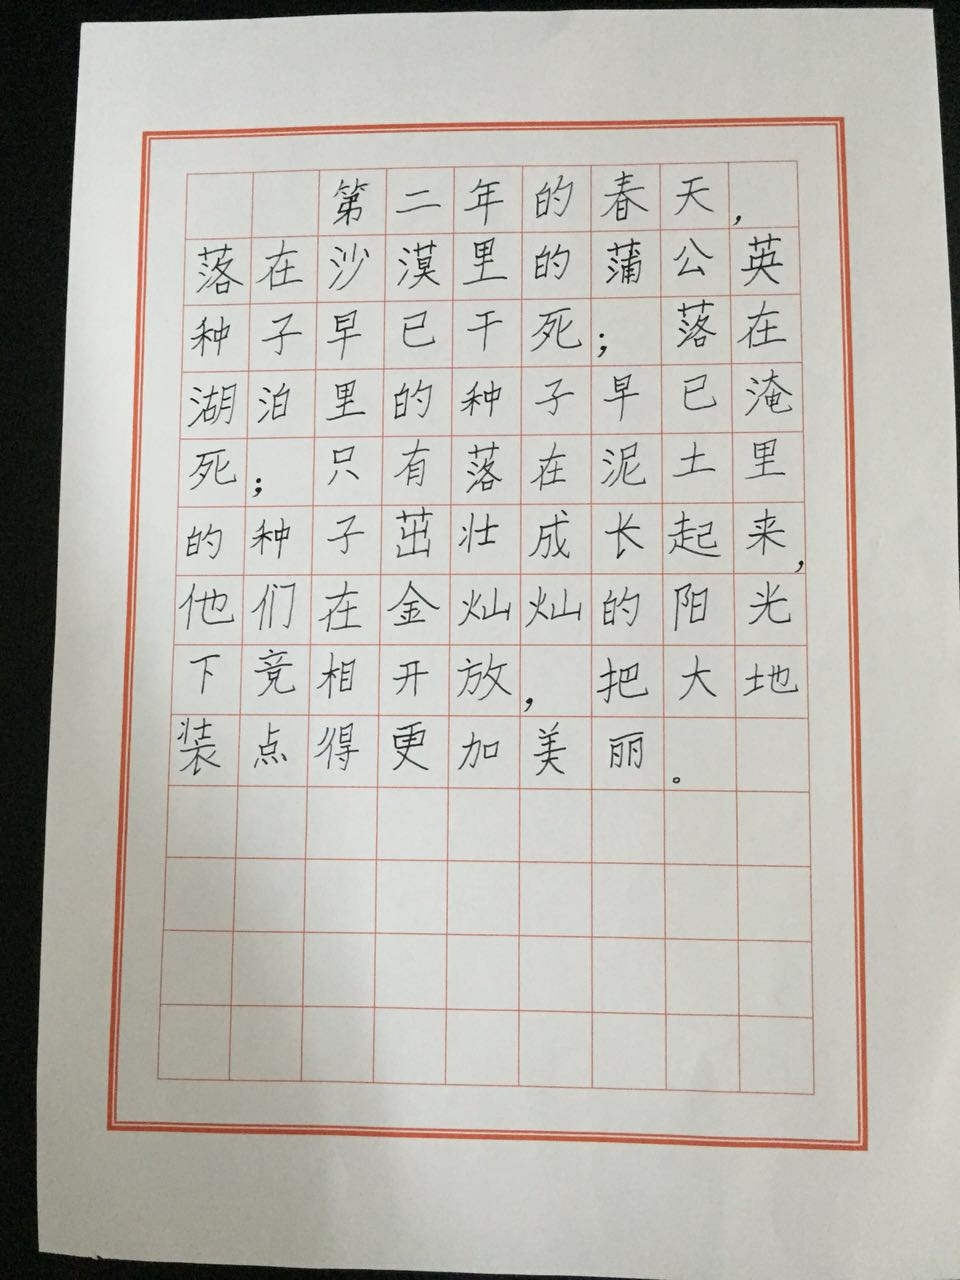 第二年的春天，
落在沙漠里的蒲公英
种子早已干死；落在
湖泊里的种子早已淹
死；只有落在泥土里
的种子茁壮成长起来，
他们在金灿灿的阳光
下竞相开放，把大地
装点得更加美丽。